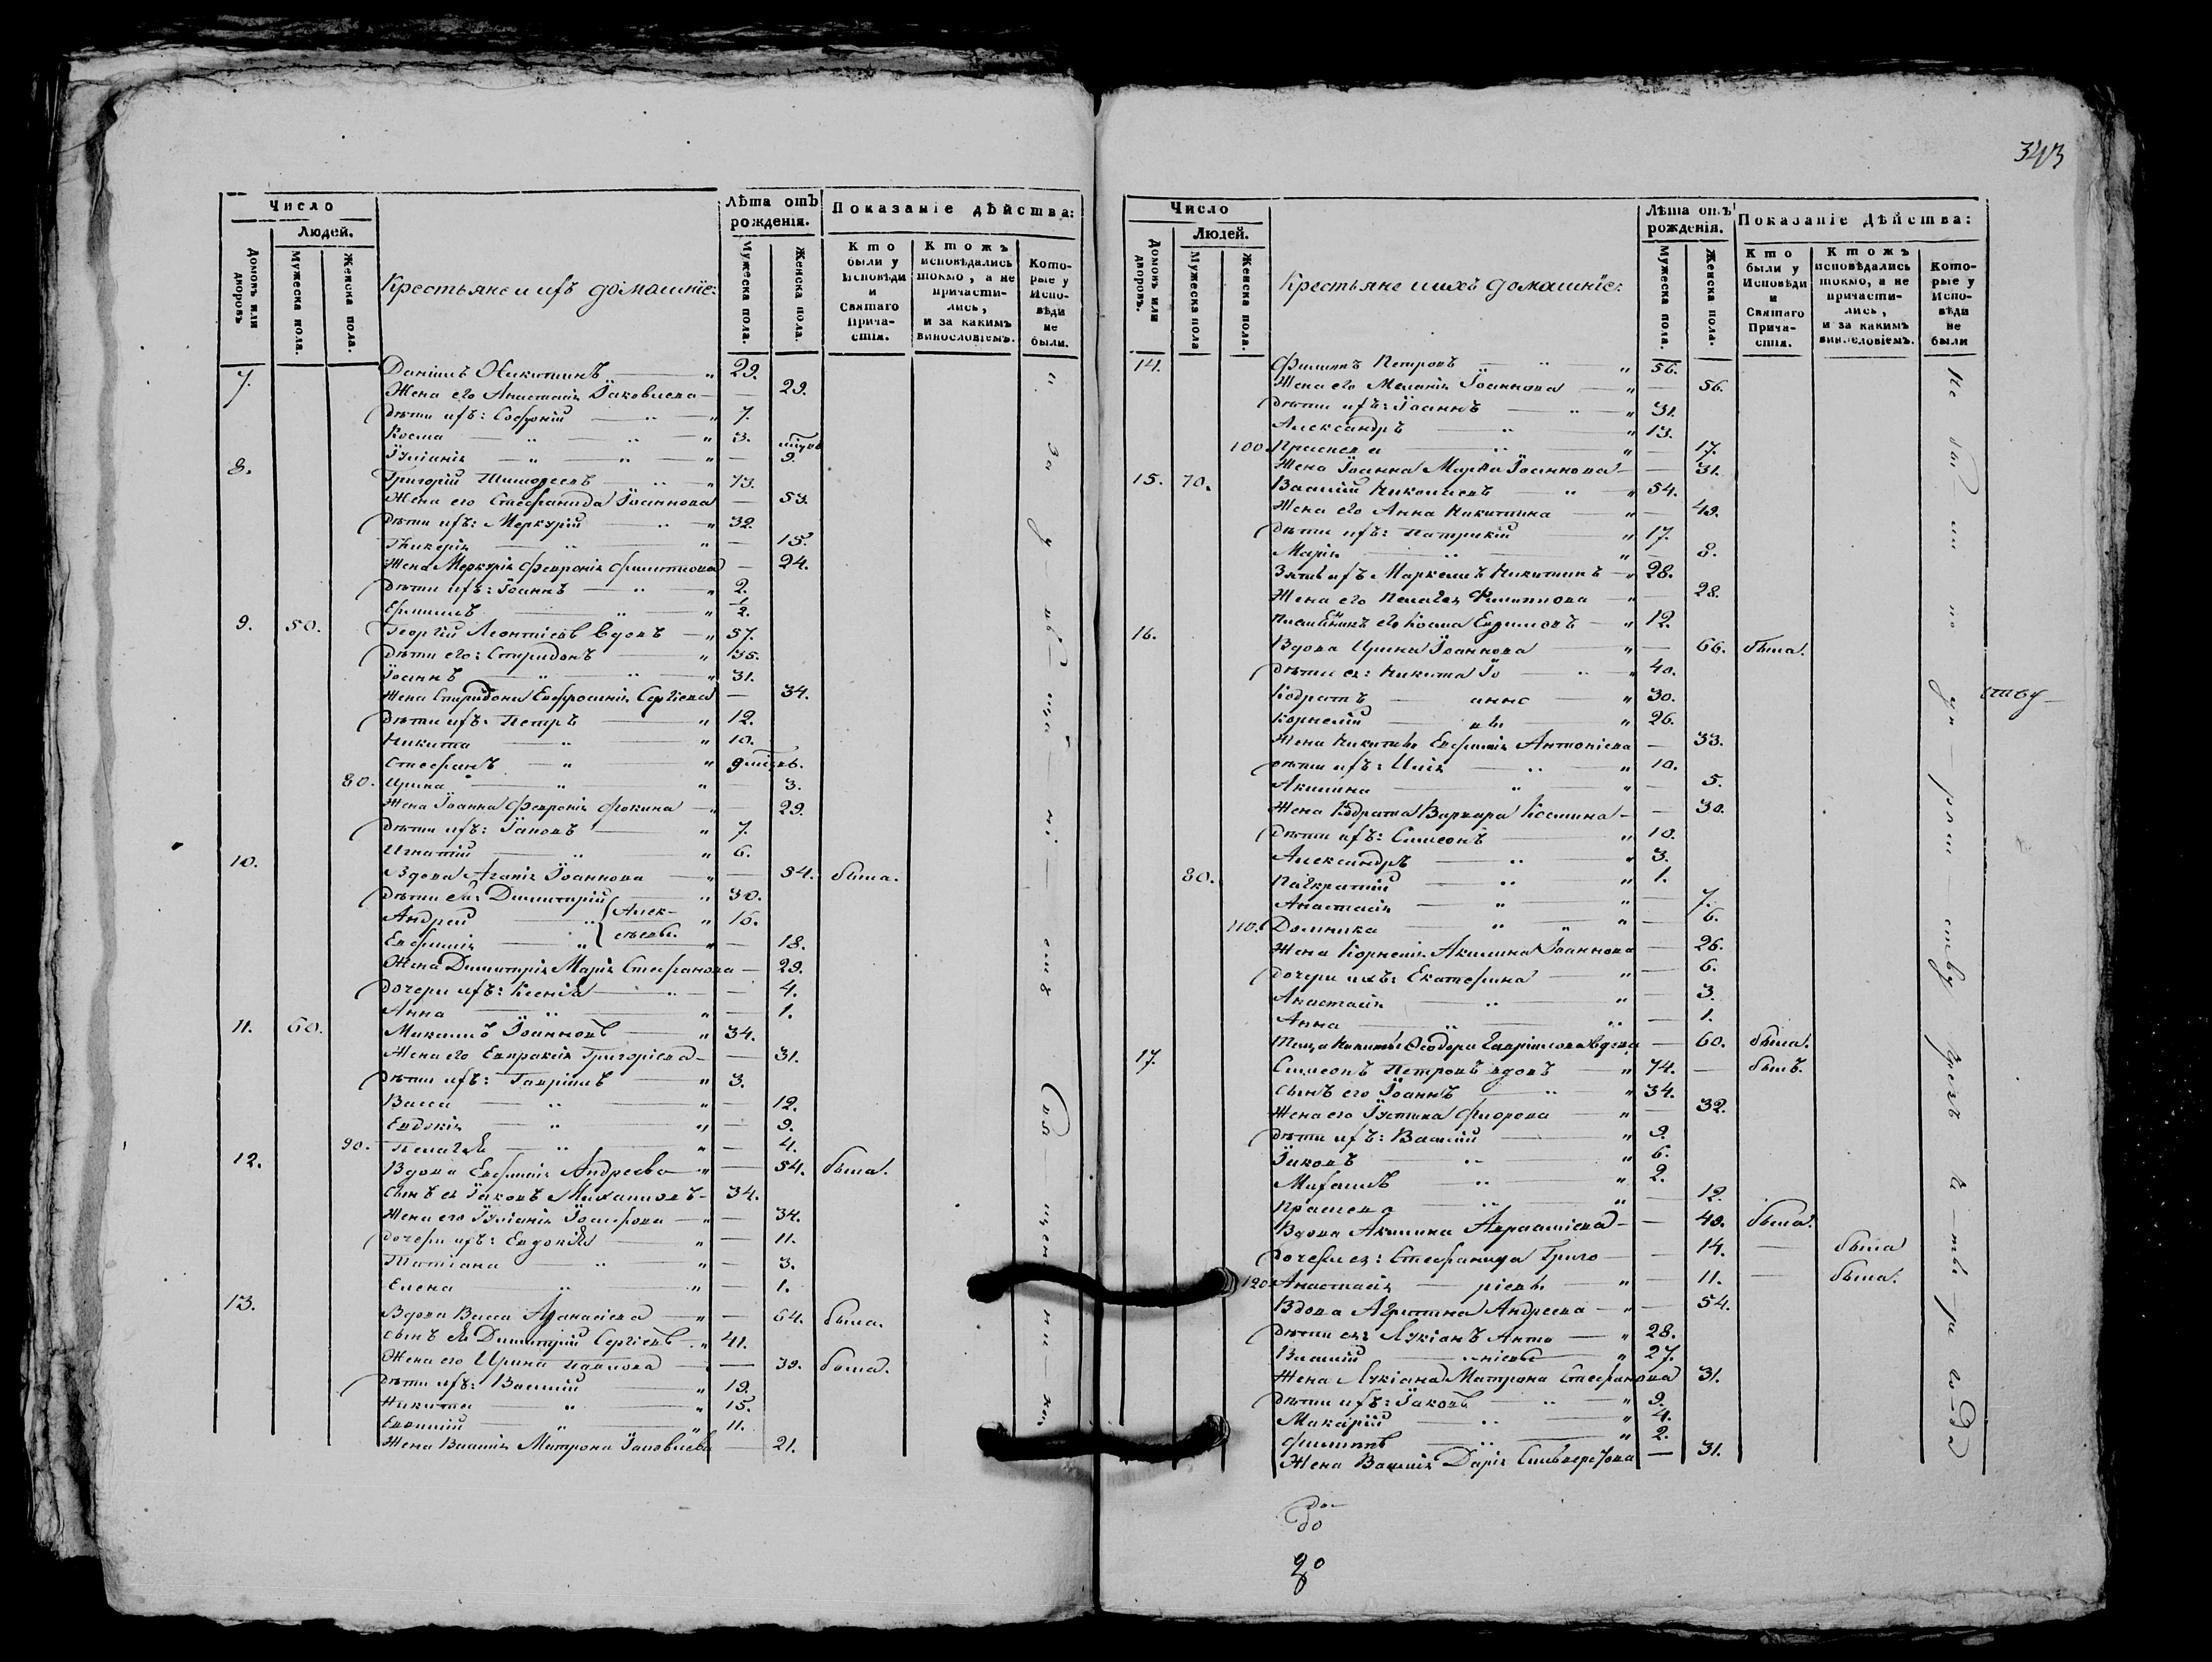 Число
Людей.
Домовъ или дворовъ
Мужеска пола.
Женска пола.
Крестьяне и ихъ домашніе:
Лѣта отъ рожденія.
Мужеска пола.
Женска пола.
Показаніе дѣйства:
Кто были у Исповѣди и Святаго Причастія.
Ктожъ исповѣдались токмо, а не причастились, и за какимъ винословіемъ.
Которые у Исповѣди не были.
7. Даніилъ Никитинъ — " 29.
Жена его Анастасія Іаковлева — — 29.
Дѣти ихъ: Софроній — " 7.
Косма — " 3.
Іуліанія — " — 9.
8. Григорій Тимофеевъ — " 73.
Жена его Стефанида Іоаннова — 53.
Дѣти ихъ: Меркурій — " 32.
Гликерія — " — 15.
Жена Меркурія Февронія Филиппова — 24.
Дѣти ихъ: Іоаннъ — " 2.
Ермилъ — " 1/2.
9. 50. Георгій Леонтіевъ вдовъ — " 57.
Дѣти его: Спиридонъ — " 35.
Іоаннъ — " 31.
Жена Спиридона Евфросинія Сергіева — 34.
Дѣти ихъ: Петръ — " 12.
Никита — " 10.
Стефанъ — " 9
80. Ирина — " — 3.
Жена Іоанна Февронія Фокина — 29.
Дѣти ихъ: Іаковъ — " 7.
Игнатій — " 6.
10. Вдова Агафія Іоаннова — " — 54. была.
Дѣти ея: Димитрій — " 30.
Андрей — " Алек- " 16.
Евфимія — " сѣевы. " — 18.
Жена Димитрія Марія Стефанова — — 29.
Дочери ихъ: Ксенія — — 4.
Анна — " — 1.
11. 60. Михаилъ Іоанновъ — " 34.
Жена его Евпраксія Григоріева — — 31.
Дѣти ихъ: Гавріилъ — " 3.
Васса — " — 12.
Евдокія — " — 9.
90. Пелагея — " — 4.
12. Вдова Евфимія Андреева — " — 54. была.
Сынъ ея Іаковъ Михаиловъ — 34.
Жена его Іуліанія Іосифова — " — 34.
Дочери ихъ: Евдокія — " — 11.
Татіана — " — 3.
Елена — " — 1.
13. Вдова Васса Афанасіева — " — 64. была.
Сынъ ея Димитрій Сергіевъ — " 41.
Жена его Ирина Павлова — — 39. была.
Дѣти ихъ: Василій — " 19.
Никита — " 15.
Евфимій — " 11.
Жена Василія Матрона Іаковлева — 21.
343
Число
Людей.
Домовъ или дворовъ.
Мужеска пола
Женска пола.
Крестьяне и ихъ домашніе:
Лѣта отъ рожденія.
Мужеска пола.
Женска пола.
Показаніе Дѣйства:
Кто были у Исповѣди и Святаго Причастія.
Ктожъ исповѣдались токмо, а не причастились, и за какимъ винословіемъ.
Которые у Исповѣди не были
14. Филиппъ Петровъ — " 56.
Жена его Меланія Іоаннова — " — 56.
Дѣти ихъ: Іоаннъ — " 31.
Александръ — " 13.
100. Праскева — " — 17.
Жена Іоанна Марѳа Іоаннова — — 31.
15. 70. Василій Николаевъ — " 54.
Жена его Анна Никитина — " — 49.
Дѣти ихъ: Патрикій — " 17.
Марія — " — 8.
Зять ихъ Маркеллъ Никитинъ — " 28.
Жена его Пелагея Филиппова — " — 28.
Племянникъ его Косма Евфимовъ — " 12.
16. Вдова Ирина Іоаннова — " — 66. была.
Дѣти ея: Никита Іо — " 40.
Кодратъ — анно — " 30.
Корнелій — вы — " 26.
Жена Никиты Евфимія Антоніева — 33.
Дѣти ихъ: Илія — " 10.
Акилина — " — 5.
Жена Кодрата Варвара Космина — — 30.
Дѣти ихъ: Симеонъ — " 10.
Александръ — " 3.
80. Панкратій — " 1.
Анастасія — " — 7.
110. Домника — " — 6.
Жена Корнелія Акилина Іоаннова — 26.
Дочери ихъ: Екатерина — " — 6.
Анастасія — " — 3.
Анна — " — 1.
Теща Никиты Ѳеодора Гавріилова вдова — 60. была.
17. Симеонъ Петровъ вдовъ — " 74. — былъ.
Сынъ его Іоаннъ — " 34.
Жена его Іустина Флорова — " — 32.
Дѣти ихъ: Василій — " 9.
Іаковъ — " 6.
Михаилъ — " 2.
Праскева — " — 12.
Вдова Акилина Авраамieва — — 40. была.
Дочери ея: Стефанида Григо — — 14. — была
120. Анастасія — ріевы — " — 11. — была.
Вдова Агриппина Андреева — " — 54.
Дѣти ея: Лукіанъ Анто — " 28.
Василій — ніевы — " 27.
Жена Лукіана Матрона Стефанова 31.
Дѣти ихъ: Іаковъ — " 9.
Макарій — " 4.
Филиппъ — " 2.
Жена Василія Дарія Сильверстова — 31.